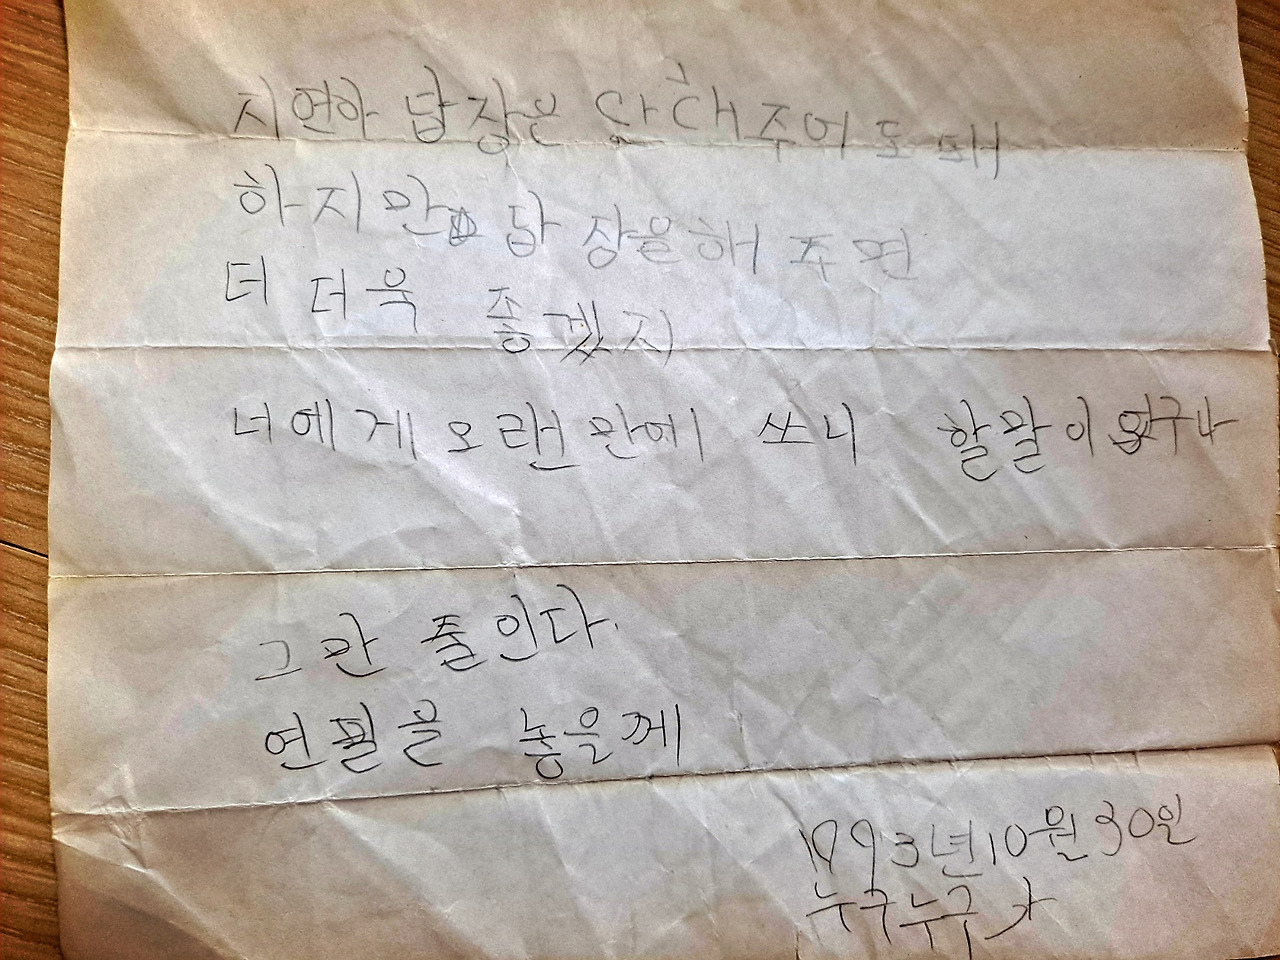 지연아 답장은 안해주어도 돼
하지만 답장을해 주면
더 더욱 좋겠지
너에게 오랜만에 쓰니 할말이 없구나
그만 줄인다.
연필을 놓을께
1993년10월30일
누구누구가